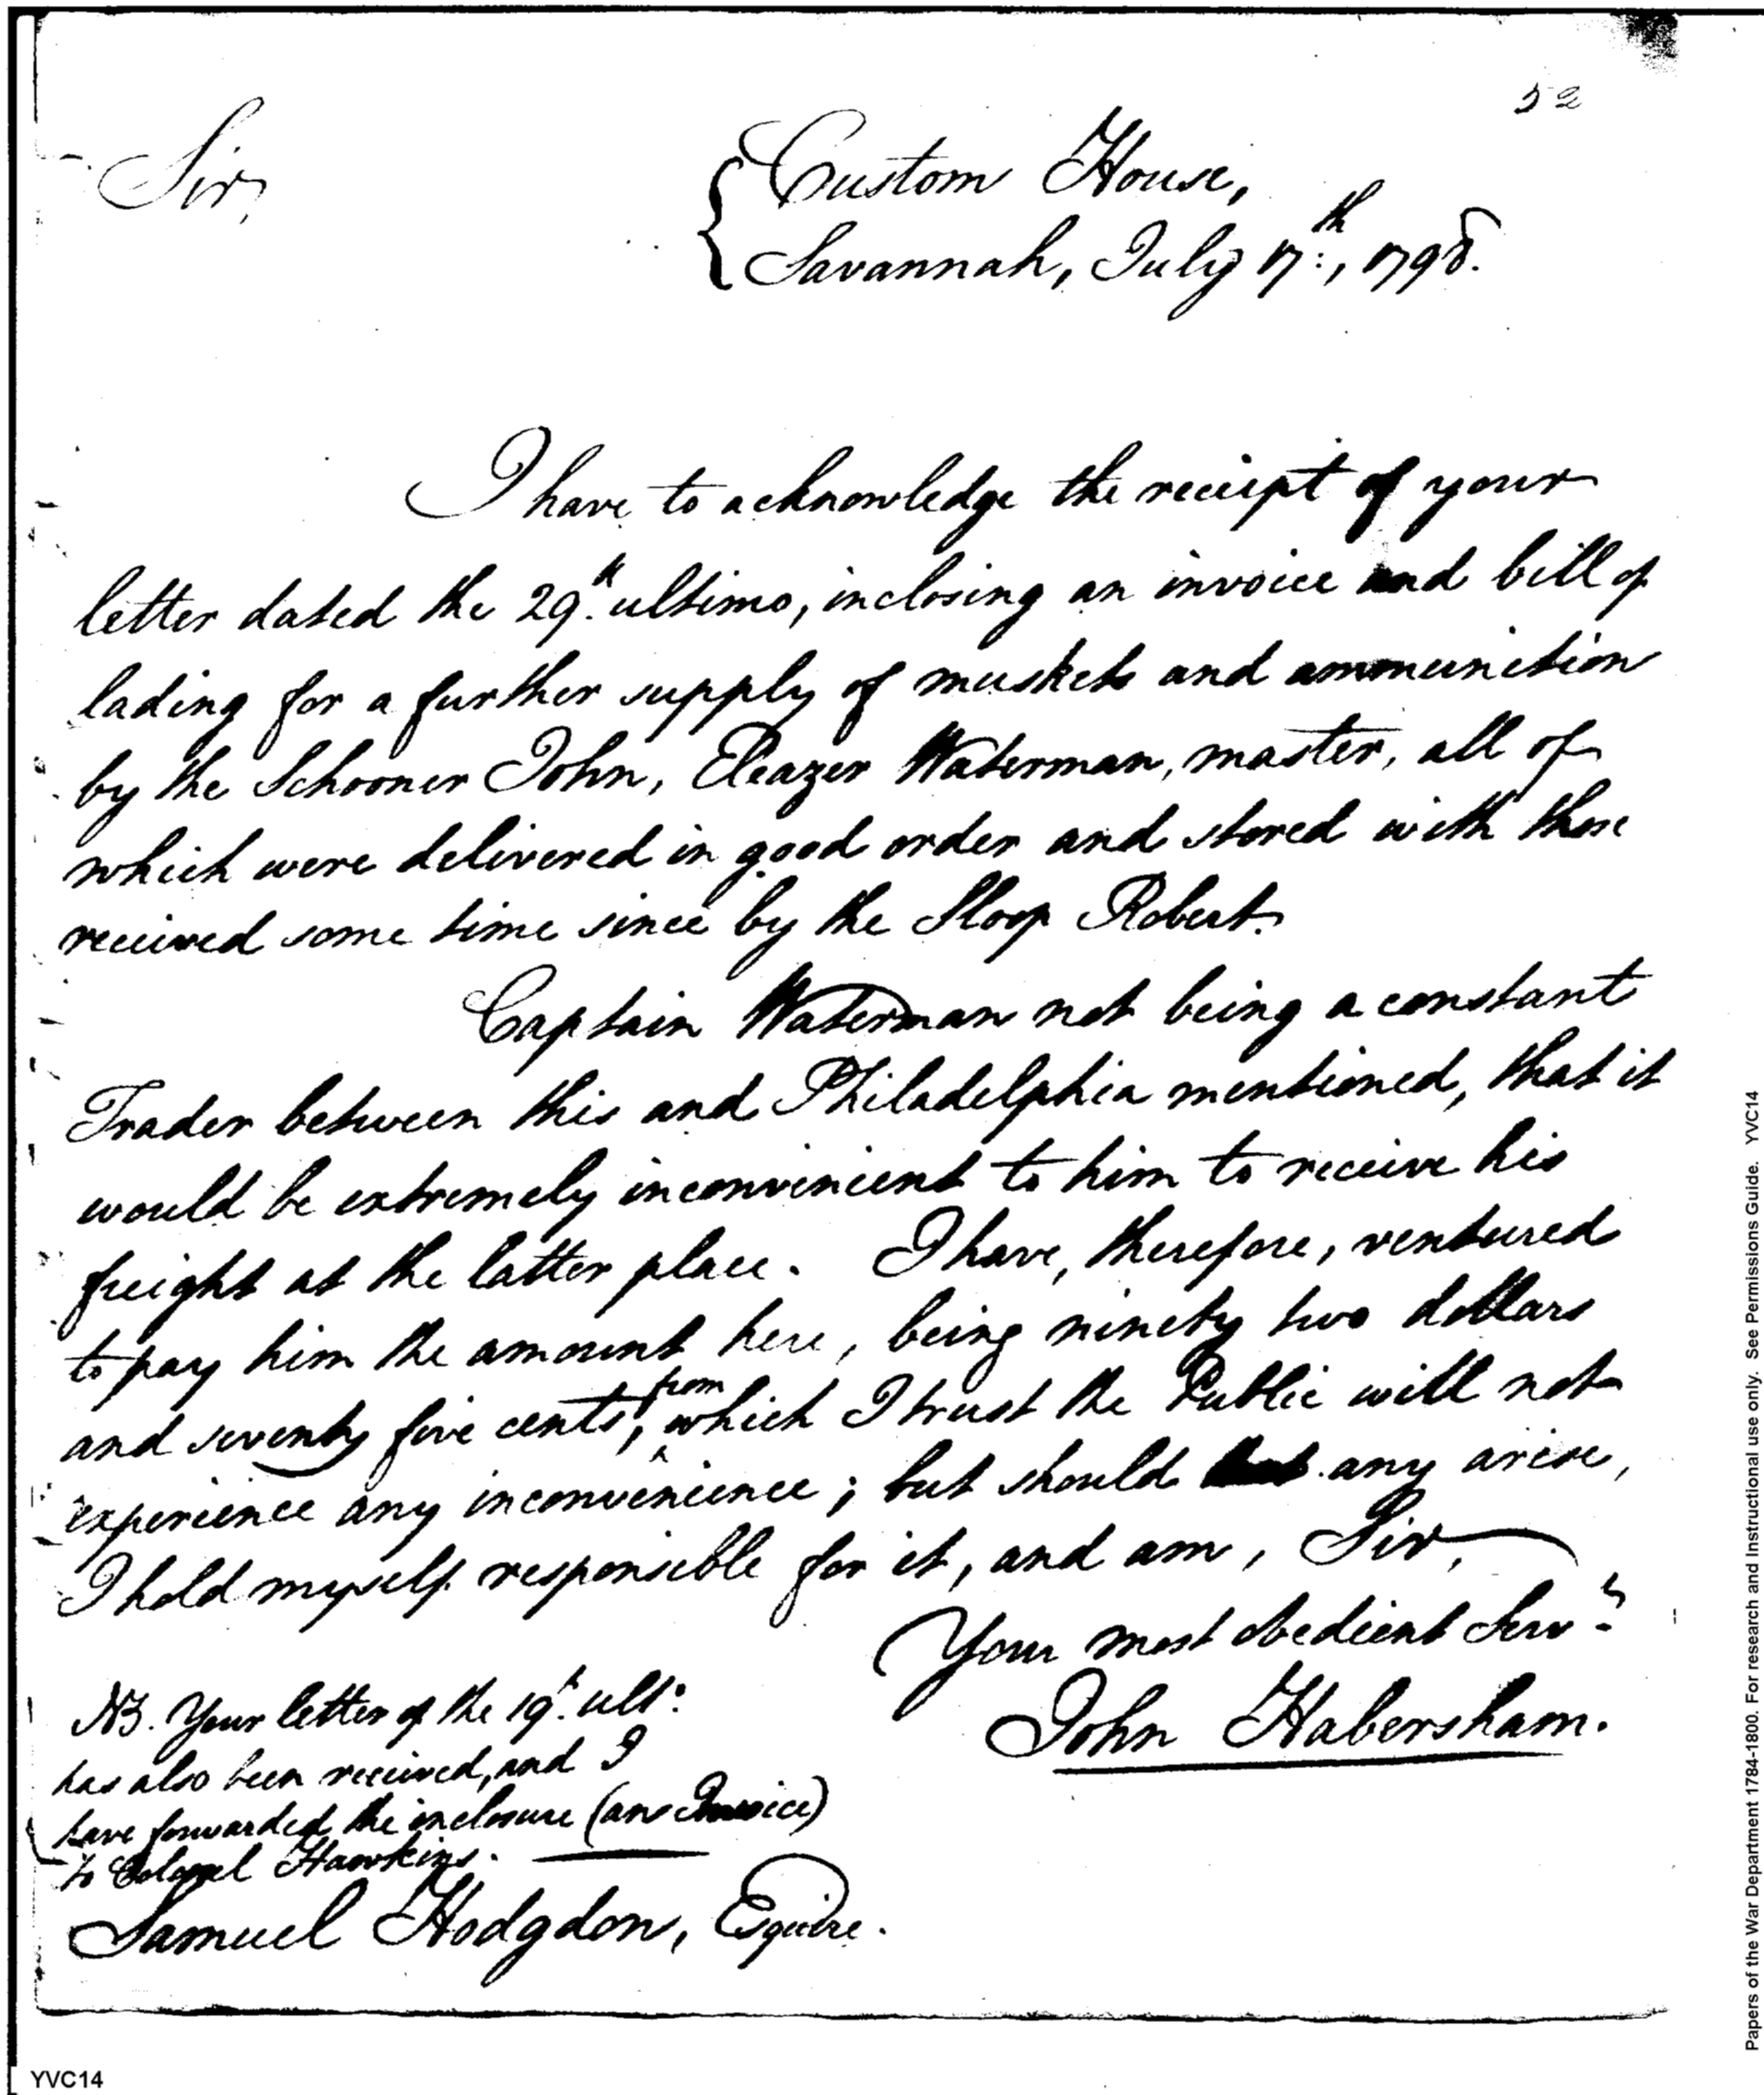 52
Sir,
Custom House,
Savannah, July 17th, 1798.
I have to acknowledge the receipt of your
letter dated the 29th ultimo, inclosing an invoice and bill of
lading for a further supply of muskets and ammunition
by the Schooner John, Eleazer Waterman, master, all of
which were delivered in good order and stored with those
received some time since by the Sloop Robert.
Captain Waterman not being a constant
Trader between this and Philadelphia mentioned, that it
would be extremely inconvenient to him to receive his
freight at the latter place. I have, therefore, ventured
to pay him the amount here, being ninety two dollars
and seventy five cents, from which I trust the Public will not
experience any inconvenience; but should any arise,
I hold myself responsible for it, and am, Sir,
Your most obedient Servt
John Habersham.
NB. Your letter of the 19th ulto:
has also been received, and I
have forwarded the inclosure (an Invoice)
to Colonel Hawkins.
Samuel Hodgdon, Esquire.
YVC14
Papers of the War Department 1784-1800. For research and Instructional use only. See Permissions Guide. YVC14